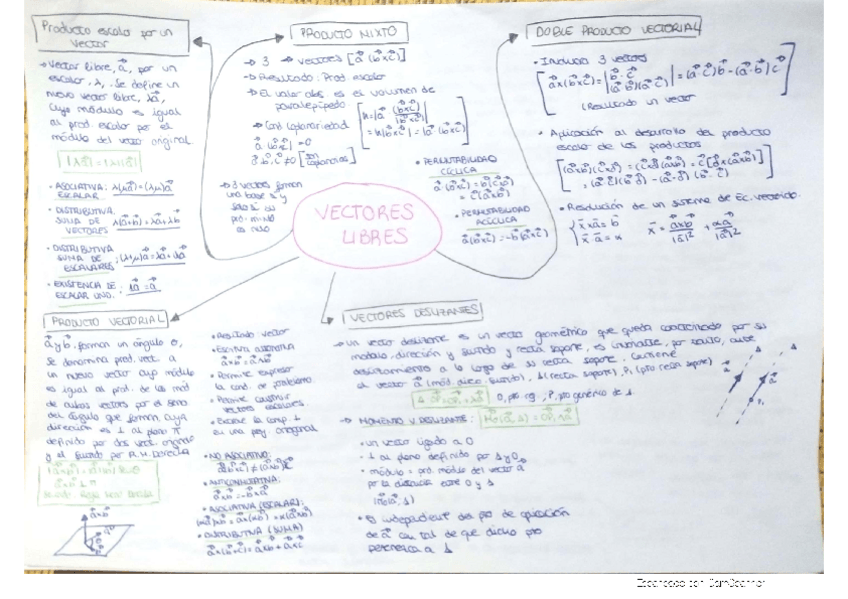 Producto escalar por un
vector
→ Vector libre, a, por un
escalar, λ, se define un
nuevo vector libre, λa,
cuyo módulo es igual
al prod. escalar por el
módulo del vector original.
|λa| = |λ||a|
• ASOCIATIVA: λ(μa) = (λμ)a
ESCALAR
• DISTRIBUTIVA
SUMA DE λ(a+b) = λa+λb
VECTORES
• DISTRIBUTIVA
SUMA DE : (λ+μ)a = λa+μa
ESCALARES
• EXISTENCIA DE : 1a = a
ESCALAR UNO.
PRODUCTO MIXTO
→ 3 vectores [a (b×c)]
→ Resultado: Prod escalar
→ El valor abs. es el volumen de
paralepípedo
→ Cond Coplanariedad
a (b×c) = 0
→ 3 vectores forman
una base si y
sólo si su
prod. mixto
es nulo
• PERMUTABILIDAD
CÍCLICA
a (b×c) = b(c×a)
= c(a×b)
• PERMUTABILIDAD
ACÍCLICA
a(b×c) = -b(a×c)
DOBLE PRODUCTO VECTORIAL
• Involucra 3 vectores
a×(b×c) = = (a·c)b - (a·b)c
(Resultado un vector
• Aplicación al desarrollo del producto
escalar de los productos
= (a·c)(b·d) - (a·d)(b·c)
• Resolución de un sistema de Ec. vectorial.
x×a = b
x·a = α x = a×b/|a|² + αa/|a|²
VECTORES
LIBRES
PRODUCTO VECTORIAL
a y b forman un ángulo θ,
se denomina prod. vect. a
un nuevo vector cuyo módulo
es igual al prod. de los mod
de ambos vectores por el seno
del ángulo que forman, cuya
dirección es ⊥ al plano π
definido por dos vect. original
y el sentido por R.M. Derecha
|a×b| = |a||b| sen θ
a×b ⊥ π
sentido Regla Mano Derecha
a×b
• Resultado vector
• Escritura
• Permite expresar
la cond. de paralelismo
• Permite construir
vectores
• NO ASOCIATIVO:
• ANTICONMUTATIVA:
a×b = -b×a
• ASOCIATIVA (ESCALAR):
• DISTRIBUTIVA (SUMA)
a×(b+c) = a×b + a×c
VECTORES DESLIZANTES
→ Un vector deslizante es un vector geométrico que queda caracterizado por su
módulo, dirección y sentido y recta soporte, es invariante, por tanto, ante
deslizamiento a lo largo de su recta soporte.
el vector a (mód. direc. sentido), Δ (recta soporte), P₁ (pto recta soporte)
→ MOMENTO V. DESLIZANTE:
• un vector ligado a O
• ⊥ al plano definido por Δ y O
• módulo = prod. módulo del vector a
por la distancia entre O y Δ
• Es independiente del pto de aplicación
de a con tal de que dicho pto
pertenezca a Δ
Escaneado con CamScanner